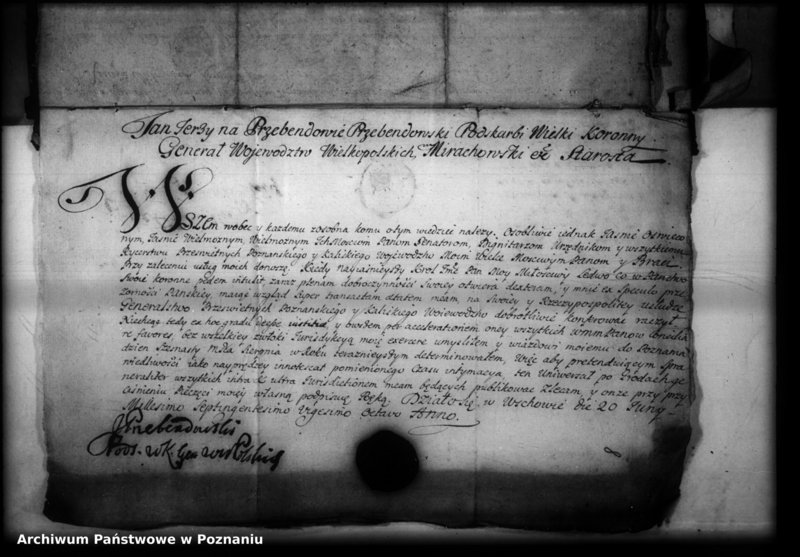 Jan Jerzy na Przebendowie Przebendowski Podskarbi Wielki Koronny
Generał Wojewodztw Wielkopolskich, Mirachowski etc Starosta
WSZem wobec y kazdemu zosobna komu otym wiedziec nalezy. Osobliwie iednak Jasnie Oswieco
nym, Jasnie Wielmoznym, Wielmoznym Ichmosciom Panom Senatorom, Dignitarzom Urzędnikom y wszystkiemu
Rycerstwu Przeswietnych Poznanskiego y Kaliskiego Wojewodztw Moim Wielce Mosciwym Panom y Braci
Przy zaleceniu usług moich donoszę. Kiedy Najjasnieyszy Krol Jmc Pan Moy Miłosciwy Ledwo co w Panstwo
swoie koronne pedem intulit, zaraz plenam dobroczynnosci swoiey otwiera dexteram, y mnie ex Speculo przezornosci
Panskiey maiąc wzgląd Super tranactam ætatem meam, na Swoiey y Rzeczypospolitey usłudze
Generalstwo Przeswietnych Poznanskiego y Kaliskiego Wojewodztw dobrotliwie konferowac raczył.
Niechcąc tedy ex hoc gradu deesse iustitiæ y owszem per accelerationem oney wszystkich wmm Panow
re favores, bez wszelkiey zwłoki Jurisdykcyą moię exercere umysliłem y wiazdowi mojemu do Poznania
dzien Szesnasty mca Sierpnia w Roku teraznieyszym determinowałem. Więc aby pretendującym Spra
wiedliwosci iako nayprędzey innotescat pomienionego Czasu intymacya, ten Uniwersał po Grodach ge
neraliter wszystkich intra et ultra Jurisdictionem meam będących publikowac Zlecam, y onze przy przy
cisnieniu Pieczęci moiey własną podpisuię Ręką. Działo się w Wschowie Die 20 Juny
Millesimo Septingentesimo Vigesimo Octavo Anno.
JPrzebendowski
Pods. WK. Gen Wielkopolski
Archiwum Państwowe w Poznaniu